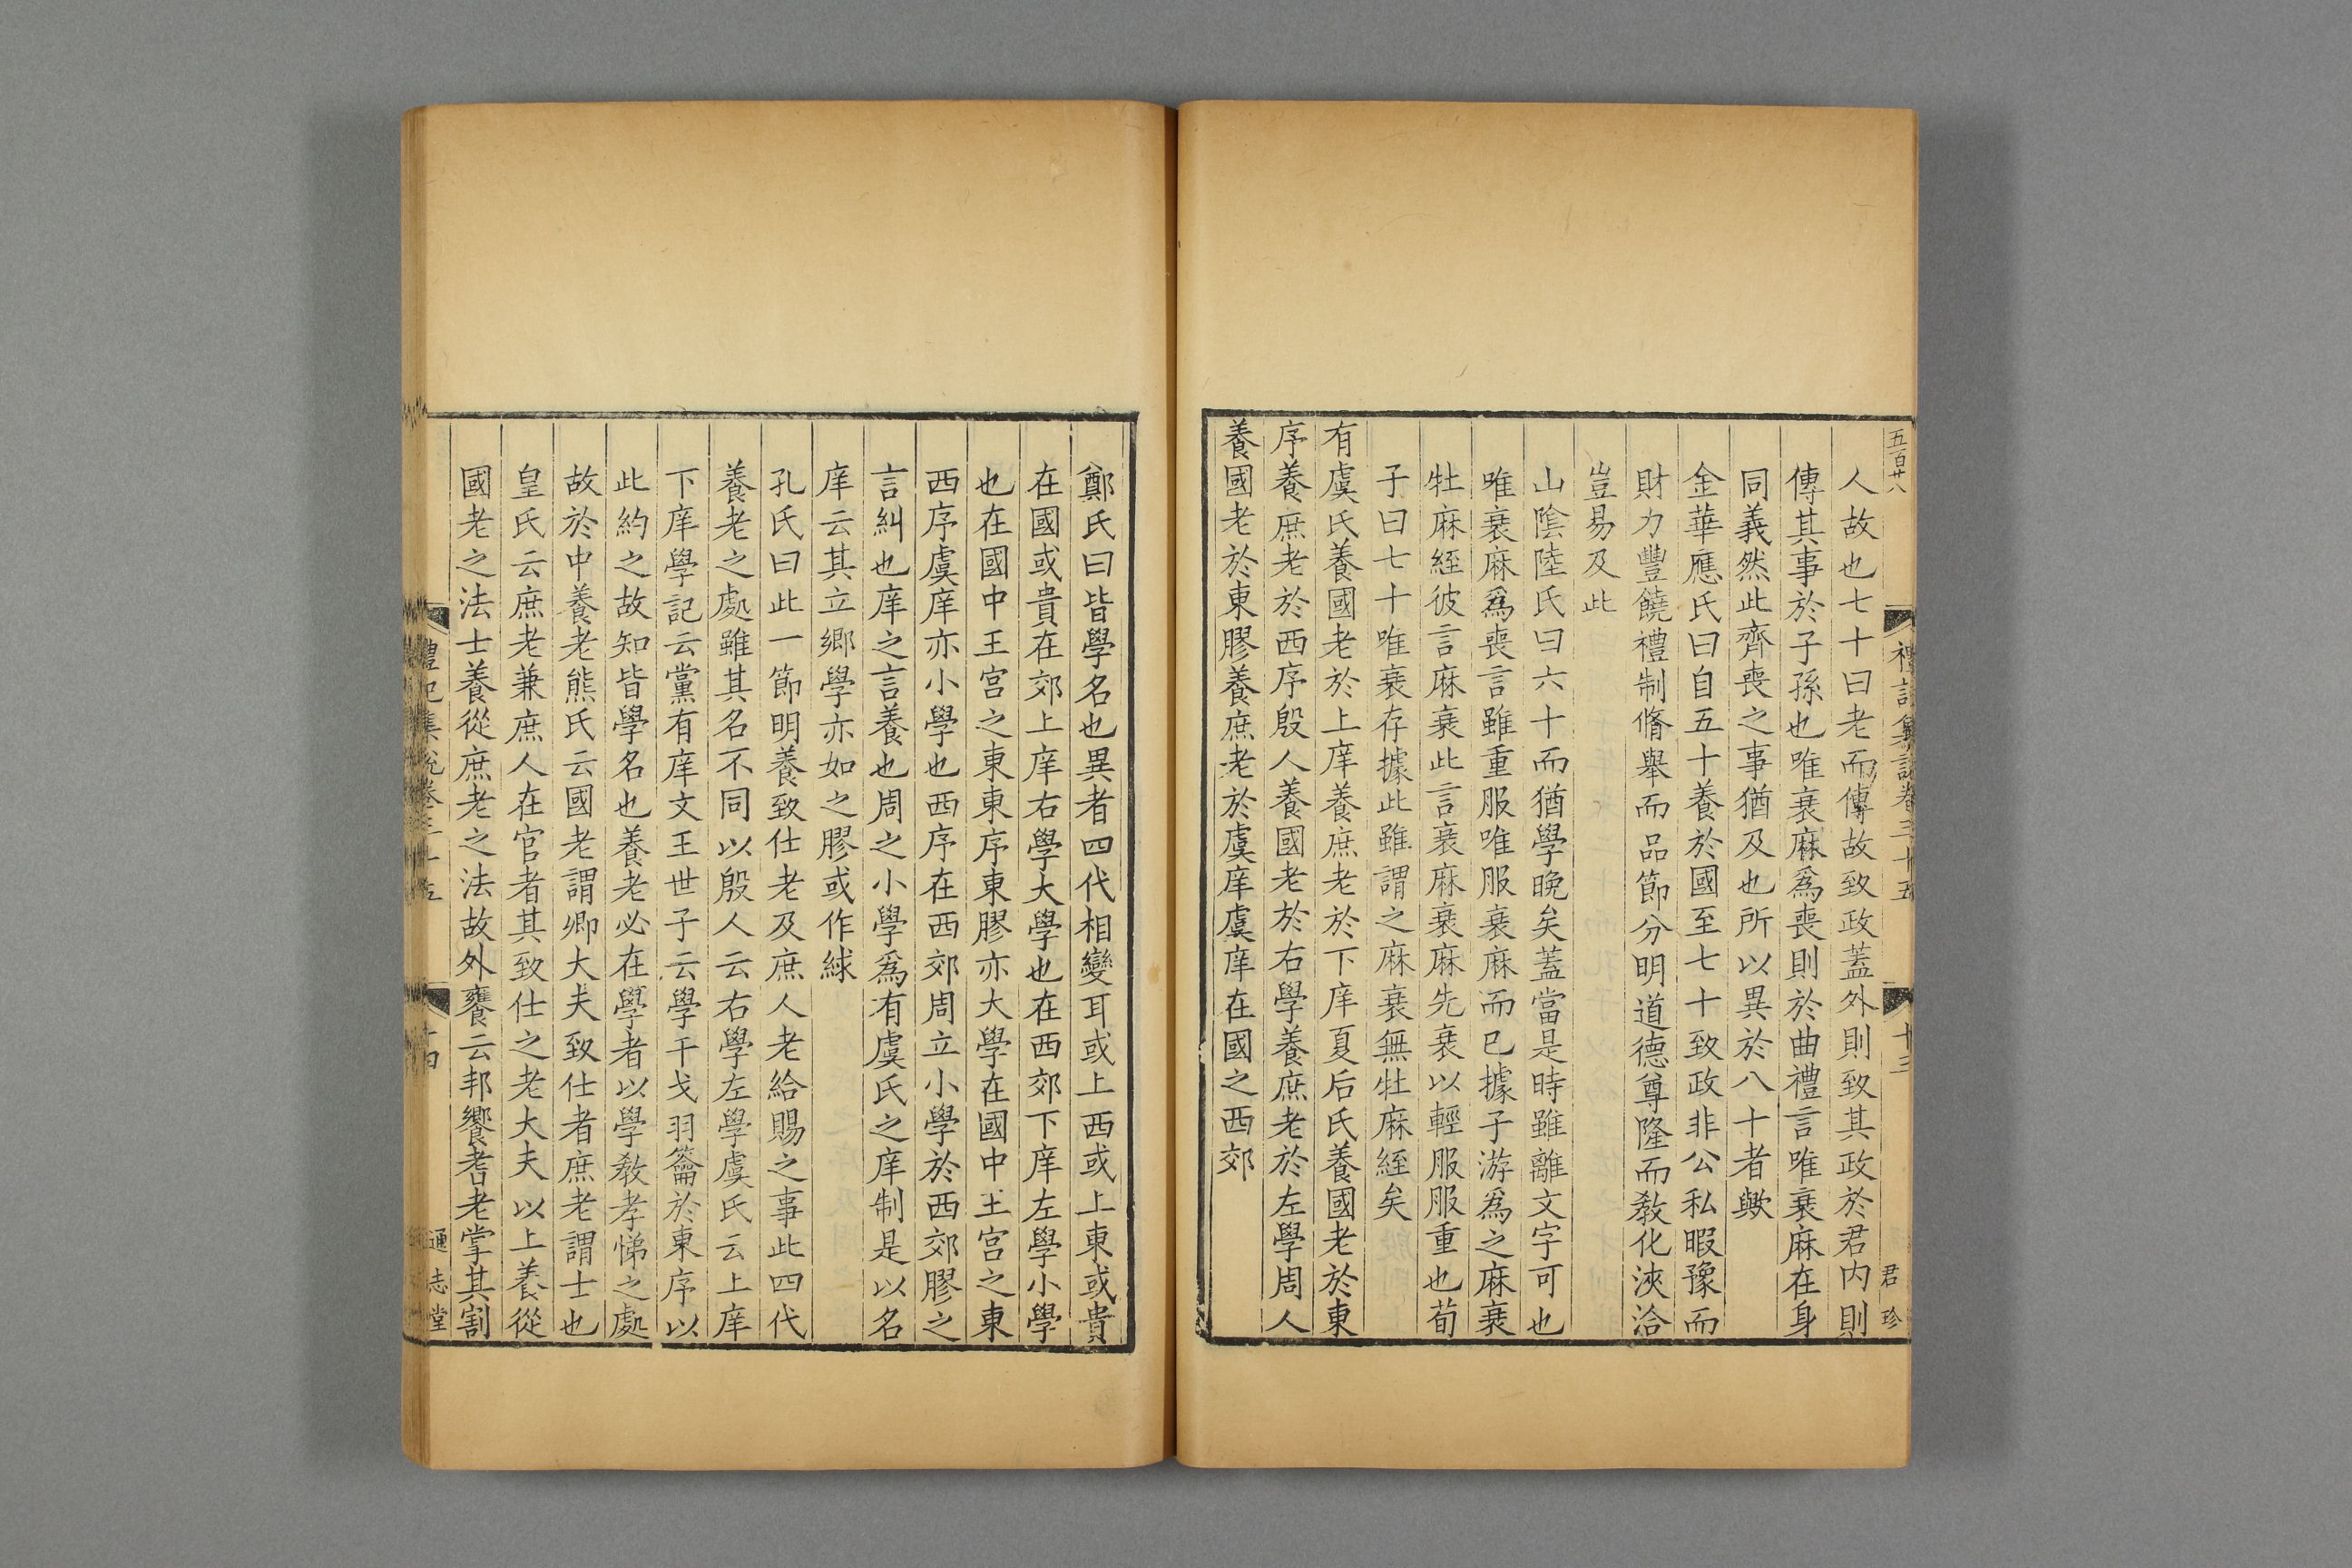 五百廿八
禮記集說卷三十五
十三
君珍
人故也七十曰老而傳故致政蓋外則致其政於君内則
傳其事於子孫也唯衰麻爲喪則於曲禮言唯衰麻在身
同義然此齊喪之事猶及也所以異於八十者歟
金華應氏曰自五十養於國至七十致政非公私暇豫而
財力豐饒禮制脩舉而品節分明道德尊隆而敎化浹洽
豈易及此
山陰陸氏曰六十而猶學晚矣蓋當是時雖離文字可也
唯衰麻爲喪言雖重服唯服衰麻而已據子游爲之麻衰
牡麻絰彼言麻衰此言衰麻衰麻先衰以輕服服重也荀
子曰七十唯衰存據此雖謂之麻衰無牡麻絰矣
有虞氏養國老於上庠養庶老於下庠夏后氏養國老於東
序養庶老於西序殷人養國老於右學養庶老於左學周人
養國老於東膠養庶老於虞庠虞庠在國之西郊
鄭氏曰皆學名也異者四代相變耳或上西或上東或貴
在國或貴在郊上庠右學大學也在西郊下庠左學小學
也在國中王宮之東東序東膠亦大學在國中王宮之東
西序虞庠亦小學也西序在西郊周立小學於西郊膠之
言糾也庠之言養也周之小學爲有虞氏之庠制是以名
庠云其立鄉學亦如之膠或作絿
孔氏曰此一節明養致仕老及庶人老給賜之事此四代
養老之處雖其名不同以殷人云右學左學虞氏云上庠
下庠學記云黨有庠文王世子云學干戈羽籥於東序以
此約之故知皆學名也養老必在學者以學敎孝悌之處
故於中養老熊氏云國老謂卿大夫致仕者庶老謂士也
皇氏云庶老兼庶人在官者其致仕之老大夫以上養從
國老之法士養從庶老之法故外饔云邦饗耆老掌其割
禮記集說卷三十五
十四
通志堂